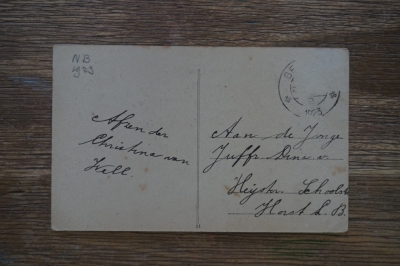 NB
Afzender
Christina van
Hell.
Aan de Jonge
Juffr. Dina v.
Schoolstr
Horst L.B.